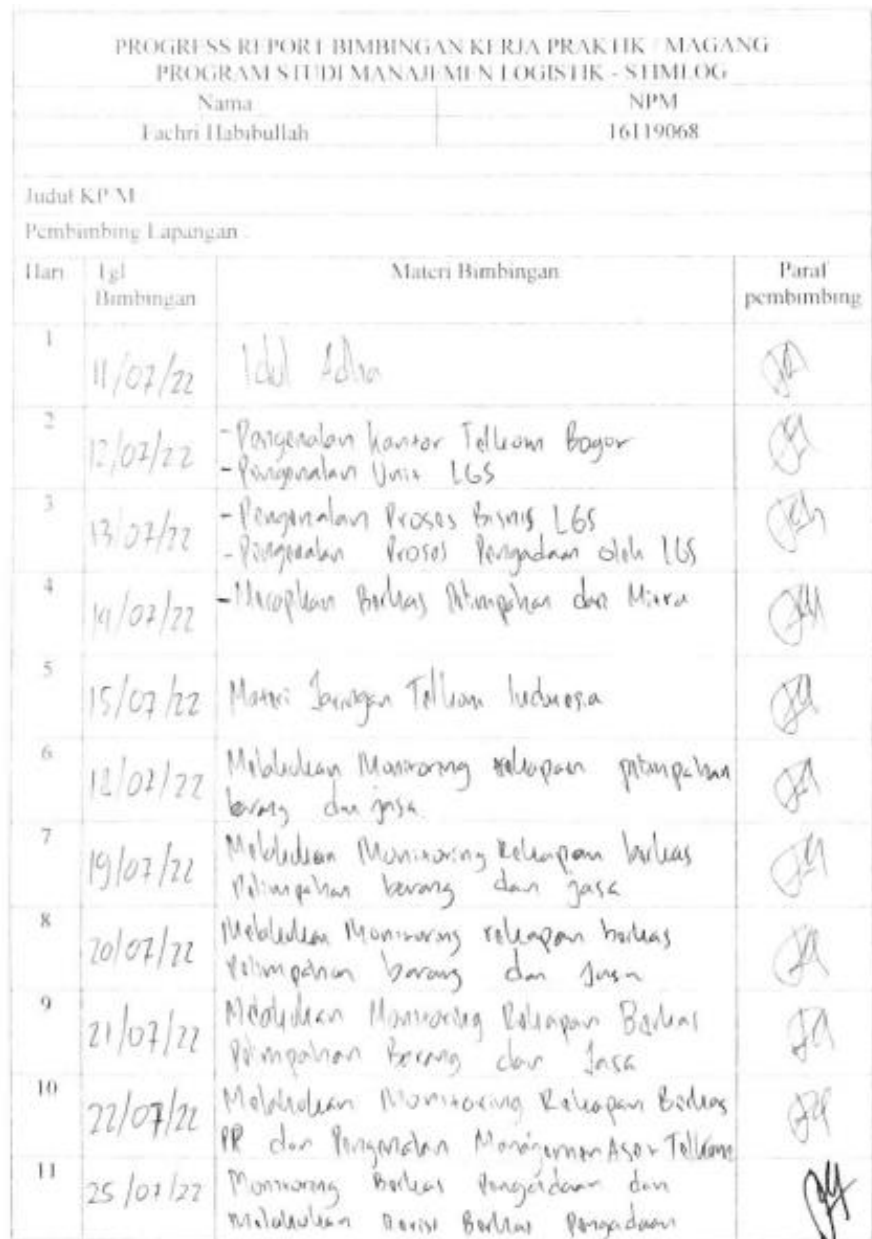 PROGRESS REPORT BIMBINGAN KERJA PRAKTIK / MAGANG
PROGRAM STUDI MANAJEMEN LOGISTIK - STIMLOG
Nama NPM
Fachri Habibullah 16119068
Judul KP/M
Pembimbing Lapangan :
Hari Tgl Bimbingan Materi Bimbingan Paraf pembimbing
1 11/07/22 Idul Adha
2 12/07/22 - Pengenalan Kantor Telkom Bogor
- Pengenalan Unit LGS
3 13/07/22 - Pengenalan Proses Bisnis LGS
- Pengenalan Proses Pengadaan oleh LGS
4 14/07/22 - Merapikan Berkas Pelimpahan dari Mitra
5 15/07/22 Materi Jaringan Telkom Indonesia
6 18/07/22 Melakukan Monitoring rekapan pelimpahan
barang dan jasa.
7 19/07/22 Melakukan Monitoring Rekapan berkas
Pelimpahan barang dan jasa
8 20/07/22 Melakukan Monitoring rekapan berkas
Pelimpahan barang dan Jasa
9 21/07/22 Melakukan Monitoring Rekapan Berkas
Pelimpahan Barang dan Jasa
10 22/07/22 Melakukan Monitoring Rekapan Berkas
PR dan Pengenalan Manajemen Aset Telkom
11 25/07/22 Monitoring Berkas Pengadaan dan
Melakukan Revisi Berkas Pengadaan